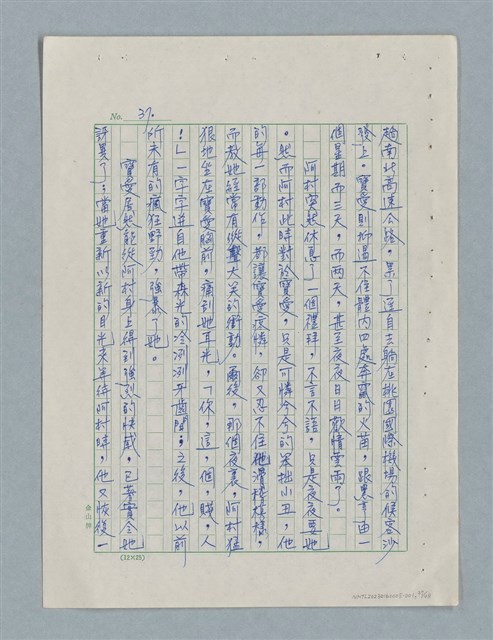 No. 37.
趟南北高速公路,累了逕自去躺在桃園國際機場的候客沙
發上。寶愛則抑遏不住體內四處奔竄的火苗,跟黑予由一
個星期而三天,而兩天,甚至夜夜日日歡情雲雨?。
阿村突然休息了一個禮拜,不言不語,只是夜夜要她
。然而阿村此時對於寶愛,只是可憐兮兮的笨拙小丑,他
的每一部動作,都讓寶愛疲憐,卻又忍不住他滑稽模樣,
而教她經常有從大笑的衝動。爾後,那個夜裏,阿村猛
狠地坐在寶愛胸前,痛刮她耳光,「你,這,個,賤,人
!」一字字迸自他帶森光的冷冽牙齒間,之後,他以前
所未有的瘋狂野勁,強暴了她。
寶愛居然能從阿村身上得到強烈的快感,已著實令她
訝異了;當她重新以新的目光來等待阿村時,他又恢復一
(12×25)